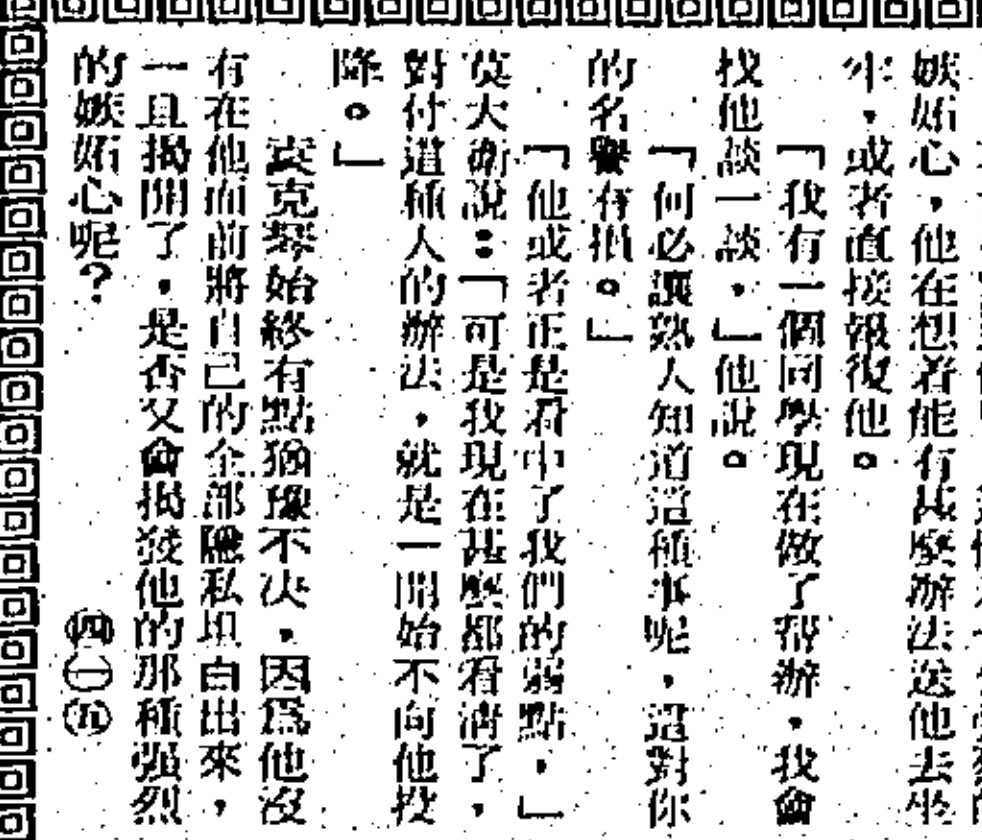 嫉妬心，他在想着能有甚麼辦法送他去坐
牢，或者直接報復他。
「我有一個同學現在做了幫辦，我會
找他談一談，」他說。
「何必讓熟人知道這種事呢，這對你
的名譽有損。」
「他或者正是看中了我們的弱點，」
莫大衛說：「可是我現在甚麼都看清了，
對付這種人的辦法，就是一開始不向他投
降。」
袁克琴始終有點猶豫不决，因爲他沒
有在他面前將自己的全部隱私坦白出來，
一旦揭開了，是否又會揭發他的那種强烈
的嫉妬心呢？
㊃㊀㊄